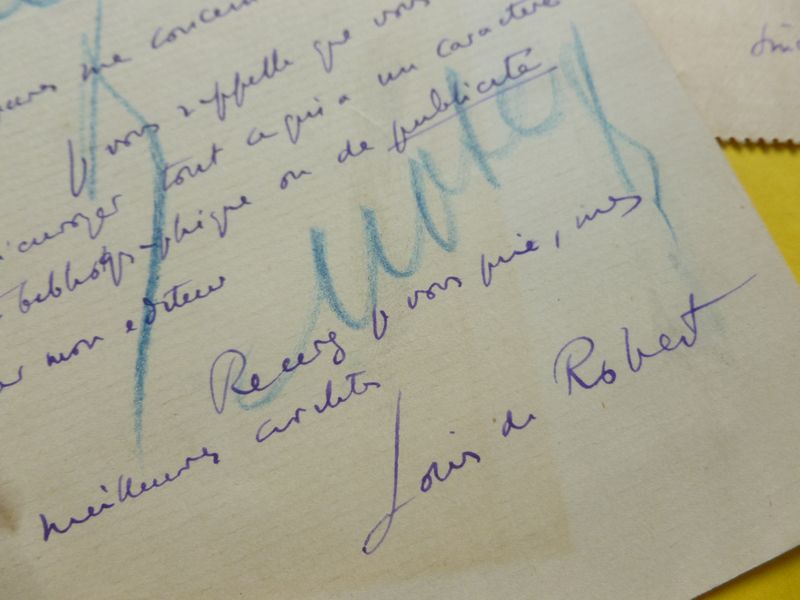 me concern
Je vous rappelle que vous
tout ce qui a un caractère
bibliographique ou de publicité
mon editeur
Recevez je vous prie, mes
meilleures
Louis de Robert